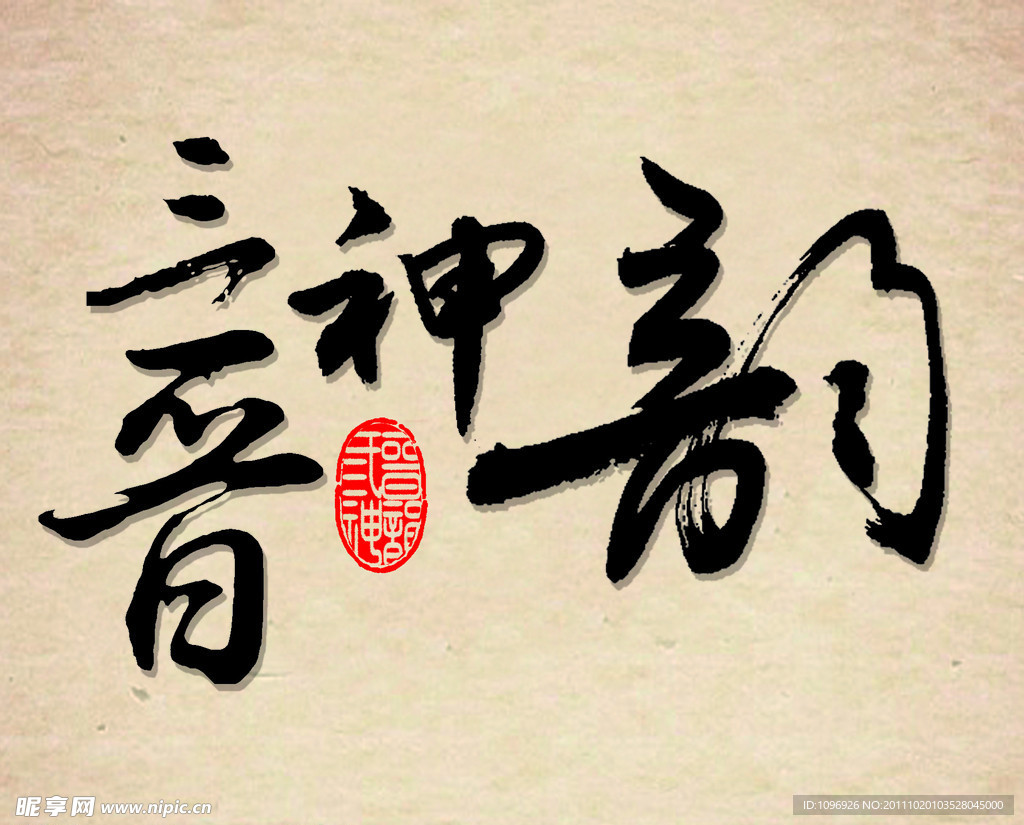 三晋神韵
弎晉神韻
昵享网 www.nipic.cn
ID:1096926 NO:20111020103528045000